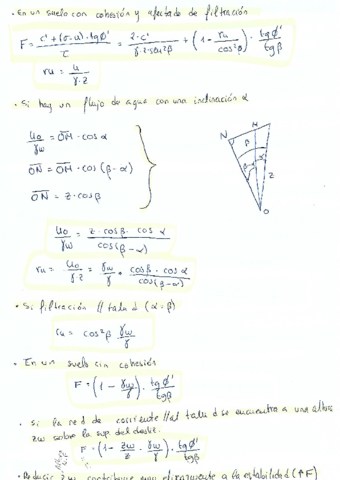 • En un suelo con cohesión y afectado de filtración
F = (c' + (σ-u)·tgϕ')/τ = (2·c')/(γ·z·sen2β) + (1 - ru/cos²β)·tgϕ'/tgβ
ru = u/(γ·z)
• Si hay un flujo de agua con una inclinación α
u0/γw = OM·cosα
ON = OM·cos(β-α)
ON = z·cosβ
N M β α β-α z O
u0/γw = (z·cosβ·cosα)/cos(β-α)
ru = u0/(γ·z) = γw/γ · (cosβ·cosα)/cos(β-α)
• Si filtración // talud (α=β)
ru = cos²β γw/γ
• En un suelo sin cohesión
F = (1 - γw/γ)·tgϕ'/tgβ
• Si la red de corriente // al talud se encuentra a una altura
zw sobre la sup. del desliz.
F = (1 - zw/z · γw/γ)·tgϕ'/tgβ
• Reducir zw contribuye muy eficazmente a la estabilidad (↑F)